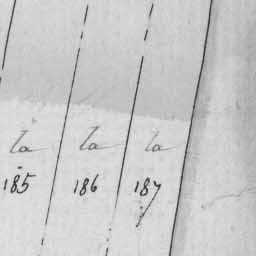 la la la
185 186 187